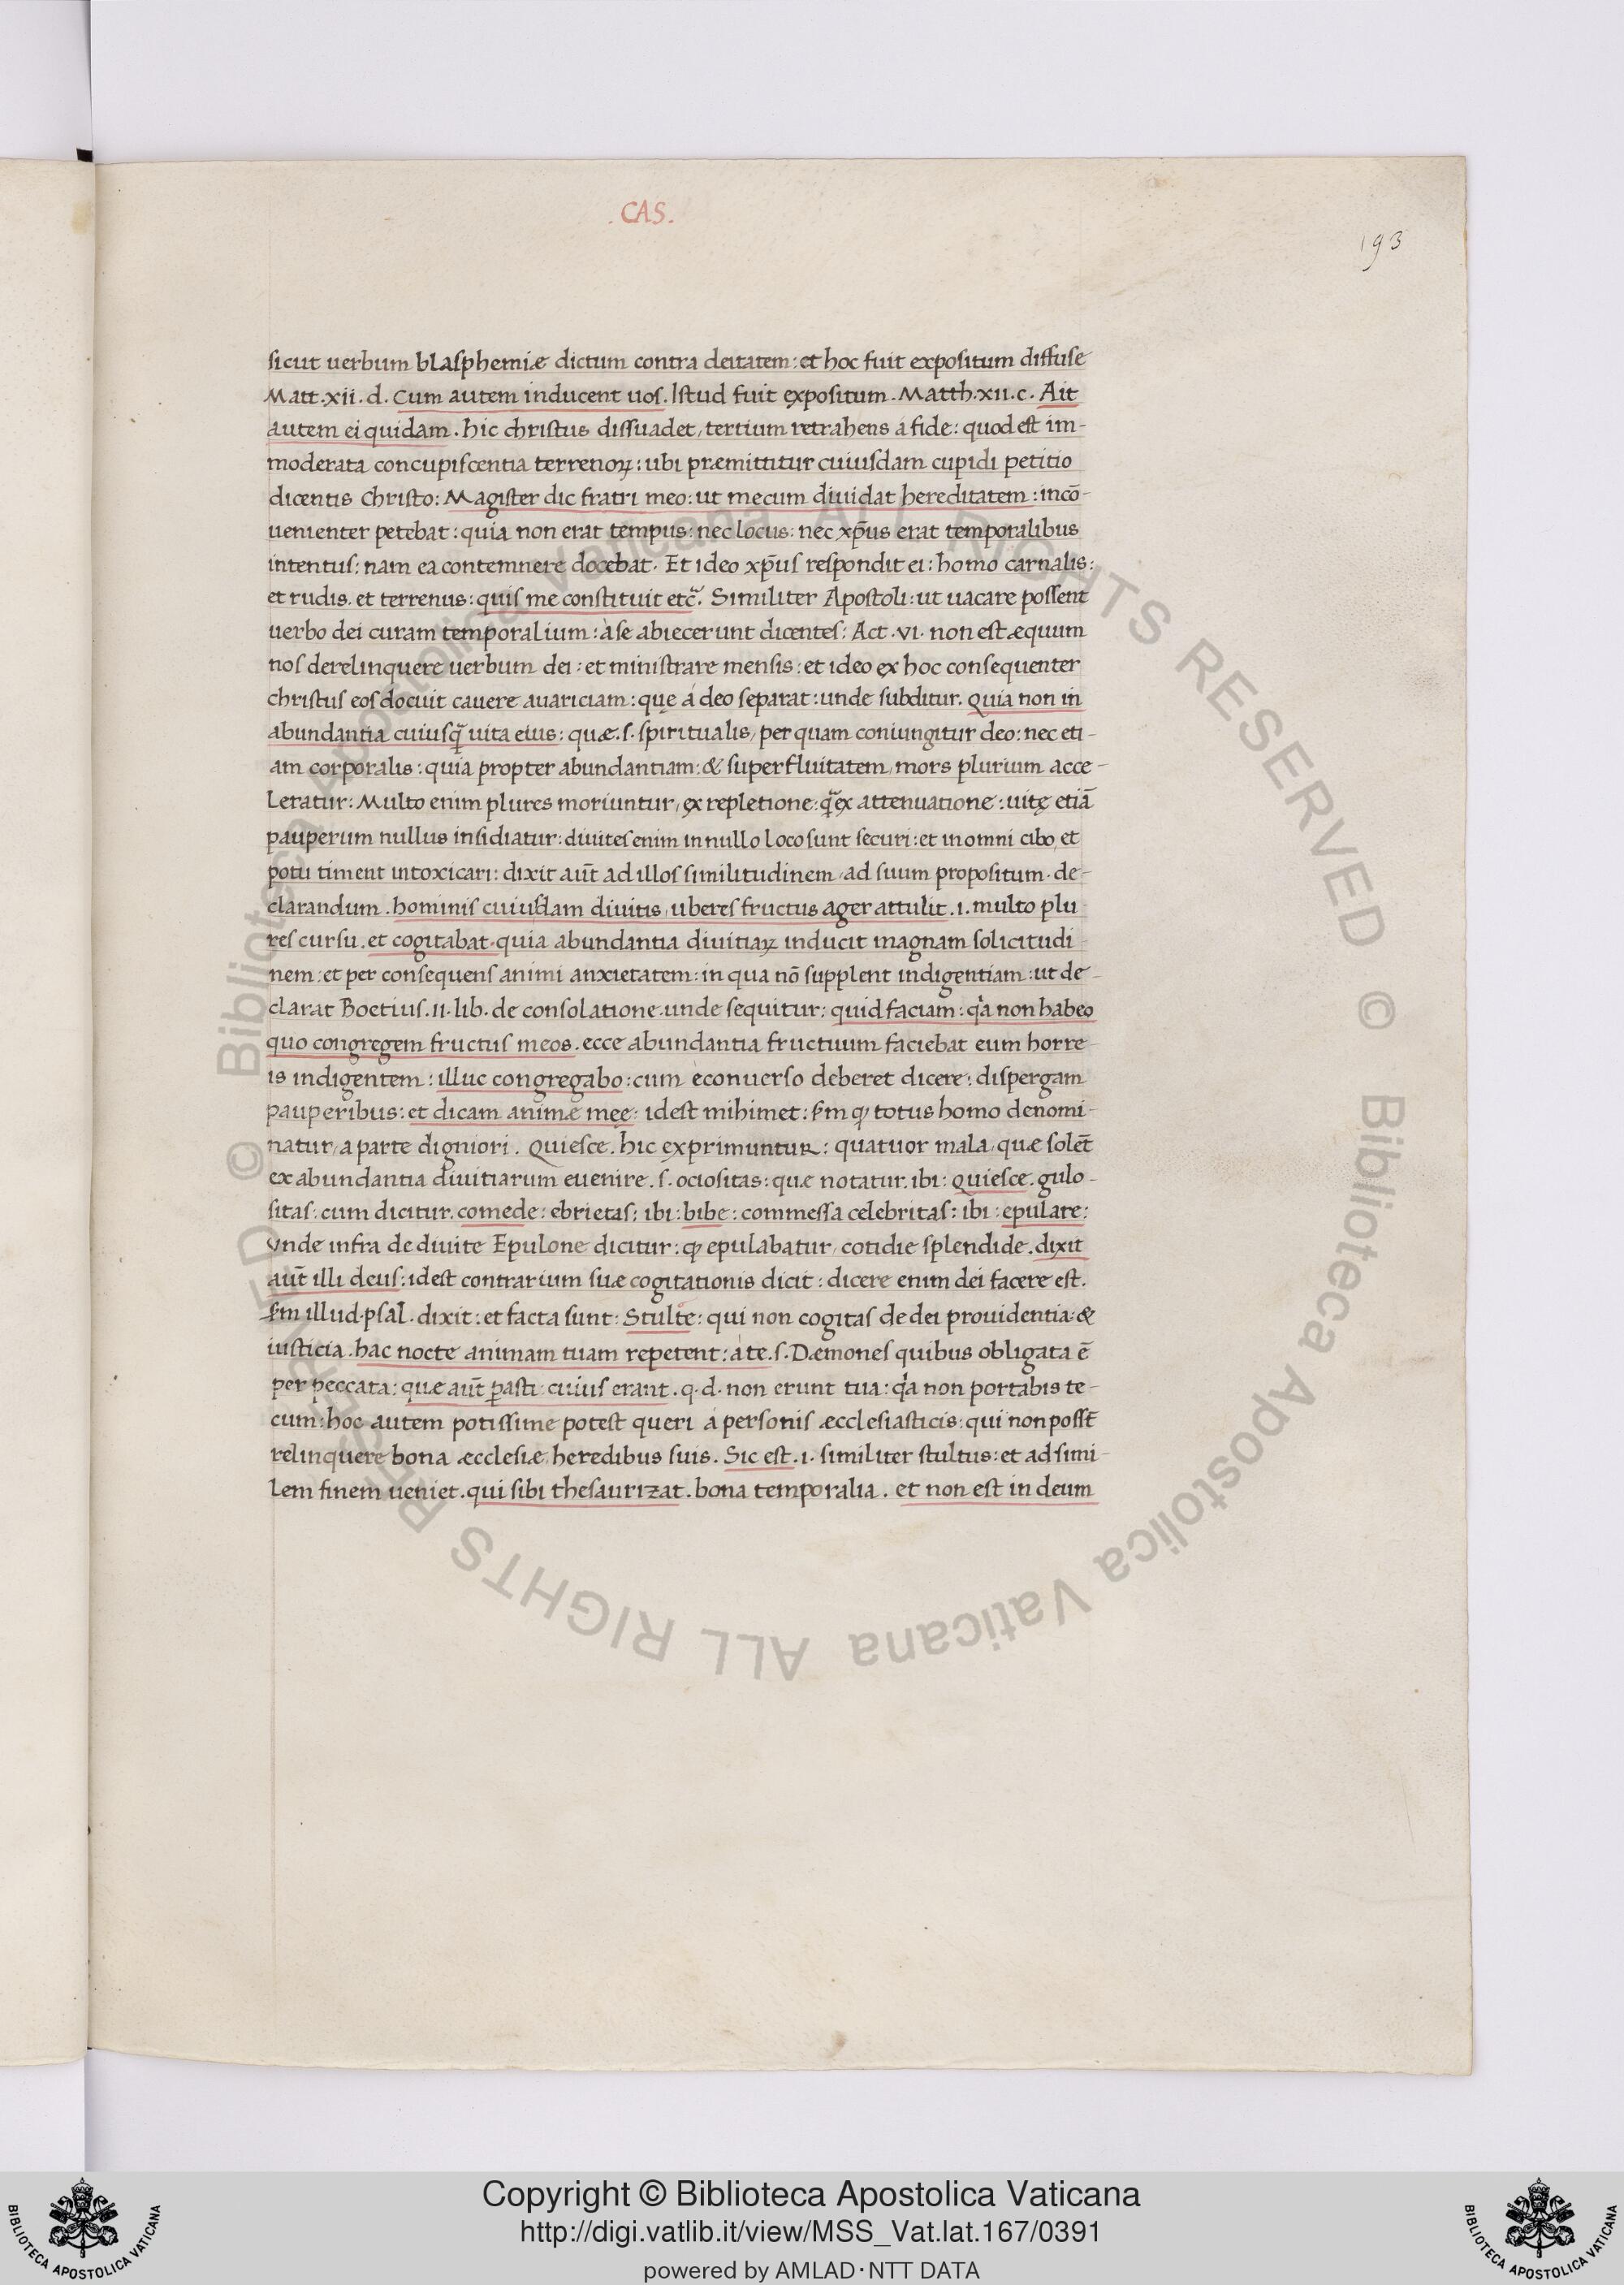 .CAS.
193
sicut uerbum blasphemiæ dictum contra deitatem: et hoc fuit expositum diffuse
Matt.xii.d. Cum autem inducent uos. Istud fuit expositum. Matth.xii.c. Ait
autem ei quidam. hic christus dissuadet, tertium retrahens á fide: quod est im-
moderata concupiscentia terrenoꝝ: ubi præmittitur cuiusdam cupidi petitio
dicentis Christo: Magister dic fratri meo: ut mecum diuidat hereditatem: incō-
uenienter petebat: quia non erat tempus: nec locus: nec xp̄us erat temporalibus
intentus: nam ea contemnere docebat. Et ideo xp̄us respondit ei: homo carnalis:
et rudis. et terrenus: quis me constituit etc̃. Similiter Apostoli: ut uacare possent
uerbo dei curam temporalium: à se abiecerunt dicentes: Act.vi. non est æquum
nos derelinquere uerbum dei: et ministrare mensis: et ideo ex hoc consequenter
christus eos docuit cauere auariciam: quę á deo separat: unde subditur. Quia non in
abundantia cuiusq̃ uita eius: quæ.s. spiritualis, per quam coniungitur deo: nec eti-
am corporalis: quia propter abundantiam: & superfluitatem, mors plurium acce-
leratur: Multo enim plures moriuntur, ex repletione: q̃ ex attenuatione: uitę etiā
pauperum nullus insidiatur: diuites enim in nullo loco sunt securi: et in omni cibo, et
potu timent intoxicari: dixit aūt ad illos similitudinem, ad suum propositum. de-
clarandum. hominis cuiusdam diuitis, uberes fructus ager attulit.i. multo plu
res cursu. et cogitabat. quia abundantia diuitiaꝝ inducit magnam solicitudi-
nem: et per consequens animi anxietatem: in qua nō supplent indigentiam: ut de-
clarat Boetius.ii.lib. de consolatione. unde sequitur: quid faciam: qͣa non habeo
quo congregem fructus meos. ecce abundantia fructuum faciebat eum horre-
is indigentem: illuc congregabo: cum èconuerso deberet dicere: dispergam
pauperibus: et dicam animæ meę: idest mihimet: s̄m ꝙ totus homo denomi-
natur, a parte digniori. Quiesce. hic exprimuntur: quatuor mala, quæ solēt
ex abundantia diuitiarum euenire.s. ociositas: quæ notatur. ibi: Quiesce. gulo-
sitas: cum dicitur. comede: ebrietas: ibi: bibe: commessa celebritas: ibi: epulare:
Vnde infra de diuite Epulone dicitur: ꝙ epulabatur, cotidie splendide. dixit
aūt illi deus: idest contrarium suæ cogitationis dicit: dicere enim dei facere est.
s̄m illud.psal̄. dixit: et facta sunt: Stulte: qui non cogitas de dei prouidentia: &
iusticia. hac nocte animam tuam repetent: à te.s. Dæmones quibus obligata ē
per peccata: quæ aūt ꝑasti: cuius erant.q.d. non erunt tua: qͣa non portabis te-
cum: hoc autem potissime potest queri á personis æcclesiasticis: qui non possт̄
relinquere bona æcclesiæ heredibus suis. Sic est.i. similiter stultus: et ad simi-
lem finem ueniet. qui sibi thesaurizat. bona temporalia. et non est in deum
© Biblioteca Apostolica Vaticana ALL RIGHTS RESERVED
© Biblioteca Apostolica Vaticana ALL RIGHTS RESERVED
Copyright © Biblioteca Apostolica Vaticana
http://digi.vatlib.it/view/MSS_Vat.lat.167/0391
powered by AMLAD·NTT DATA
BIBLIOTECA APOSTOLICA VATICANA
BIBLIOTECA APOSTOLICA VATICANA